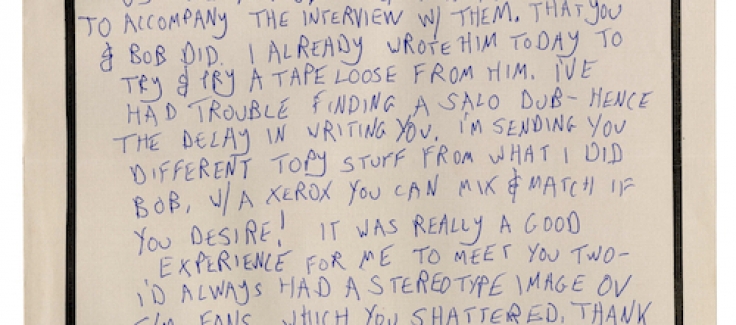 TO ACCOMPANY THE INTERVIEW W/ THEM, THAT YOU
& BOB DID. I ALREADY WROTE HIM TODAY TO
TRY & PRY A TAPE LOOSE FROM HIM. I'VE
HAD TROUBLE FINDING A SALO DUB – HENCE
THE DELAY IN WRITING YOU. I'M SENDING YOU
DIFFERENT TOPY STUFF FROM WHAT I DID
BOB, W/A XEROX YOU CAN MIX & MATCH IF
YOU DESIRE! IT WAS REALLY A GOOD
EXPERIENCE FOR ME TO MEET YOU TWO–
I'D ALWAYS HAD A STEREOTYPE IMAGE OV
FANS, WHICH YOU SHATTERED. THANK